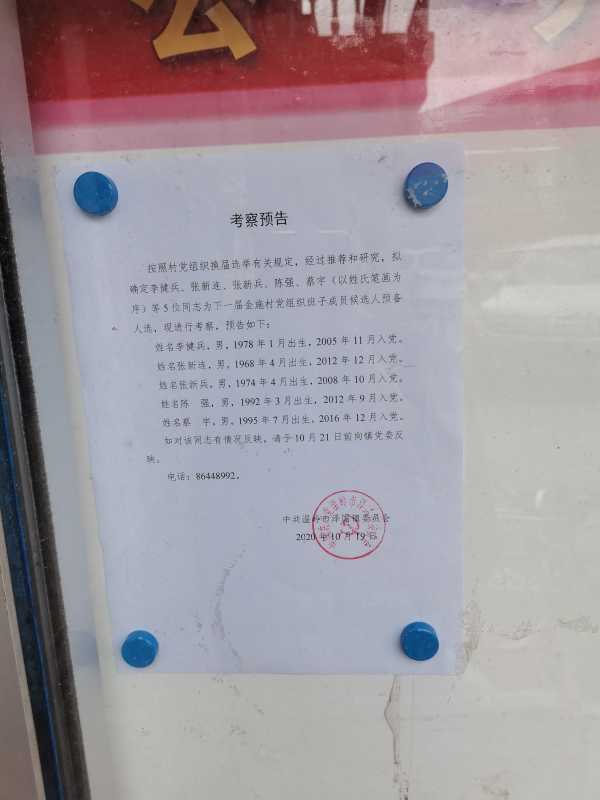 公
考察预告
按照村党组织换届选举有关规定，经过推荐和研究，拟
确定李健兵、张新连、张新兵、陈强、蔡宇（以姓氏笔画为
序）等5位同志为下一届金施村党组织班子成员候选人预备
人选，现进行考察，预告如下：
姓名李健兵，男，1978年1月出生，2005年11月入党。
姓名张新连，男，1968年4月出生，2012年12月入党。
姓名张新兵，男，1974年4月出生，2008年10月入党。
姓名陈　强，男，1992年3月出生，2012年9月入党。
姓名蔡　宇，男，1995年7月出生，2016年12月入党。
如对该同志有情况反映，请于10月21日前向镇党委反
映。
电话：86448992。
中共温岭市泽国镇委员会
2020年10月19日